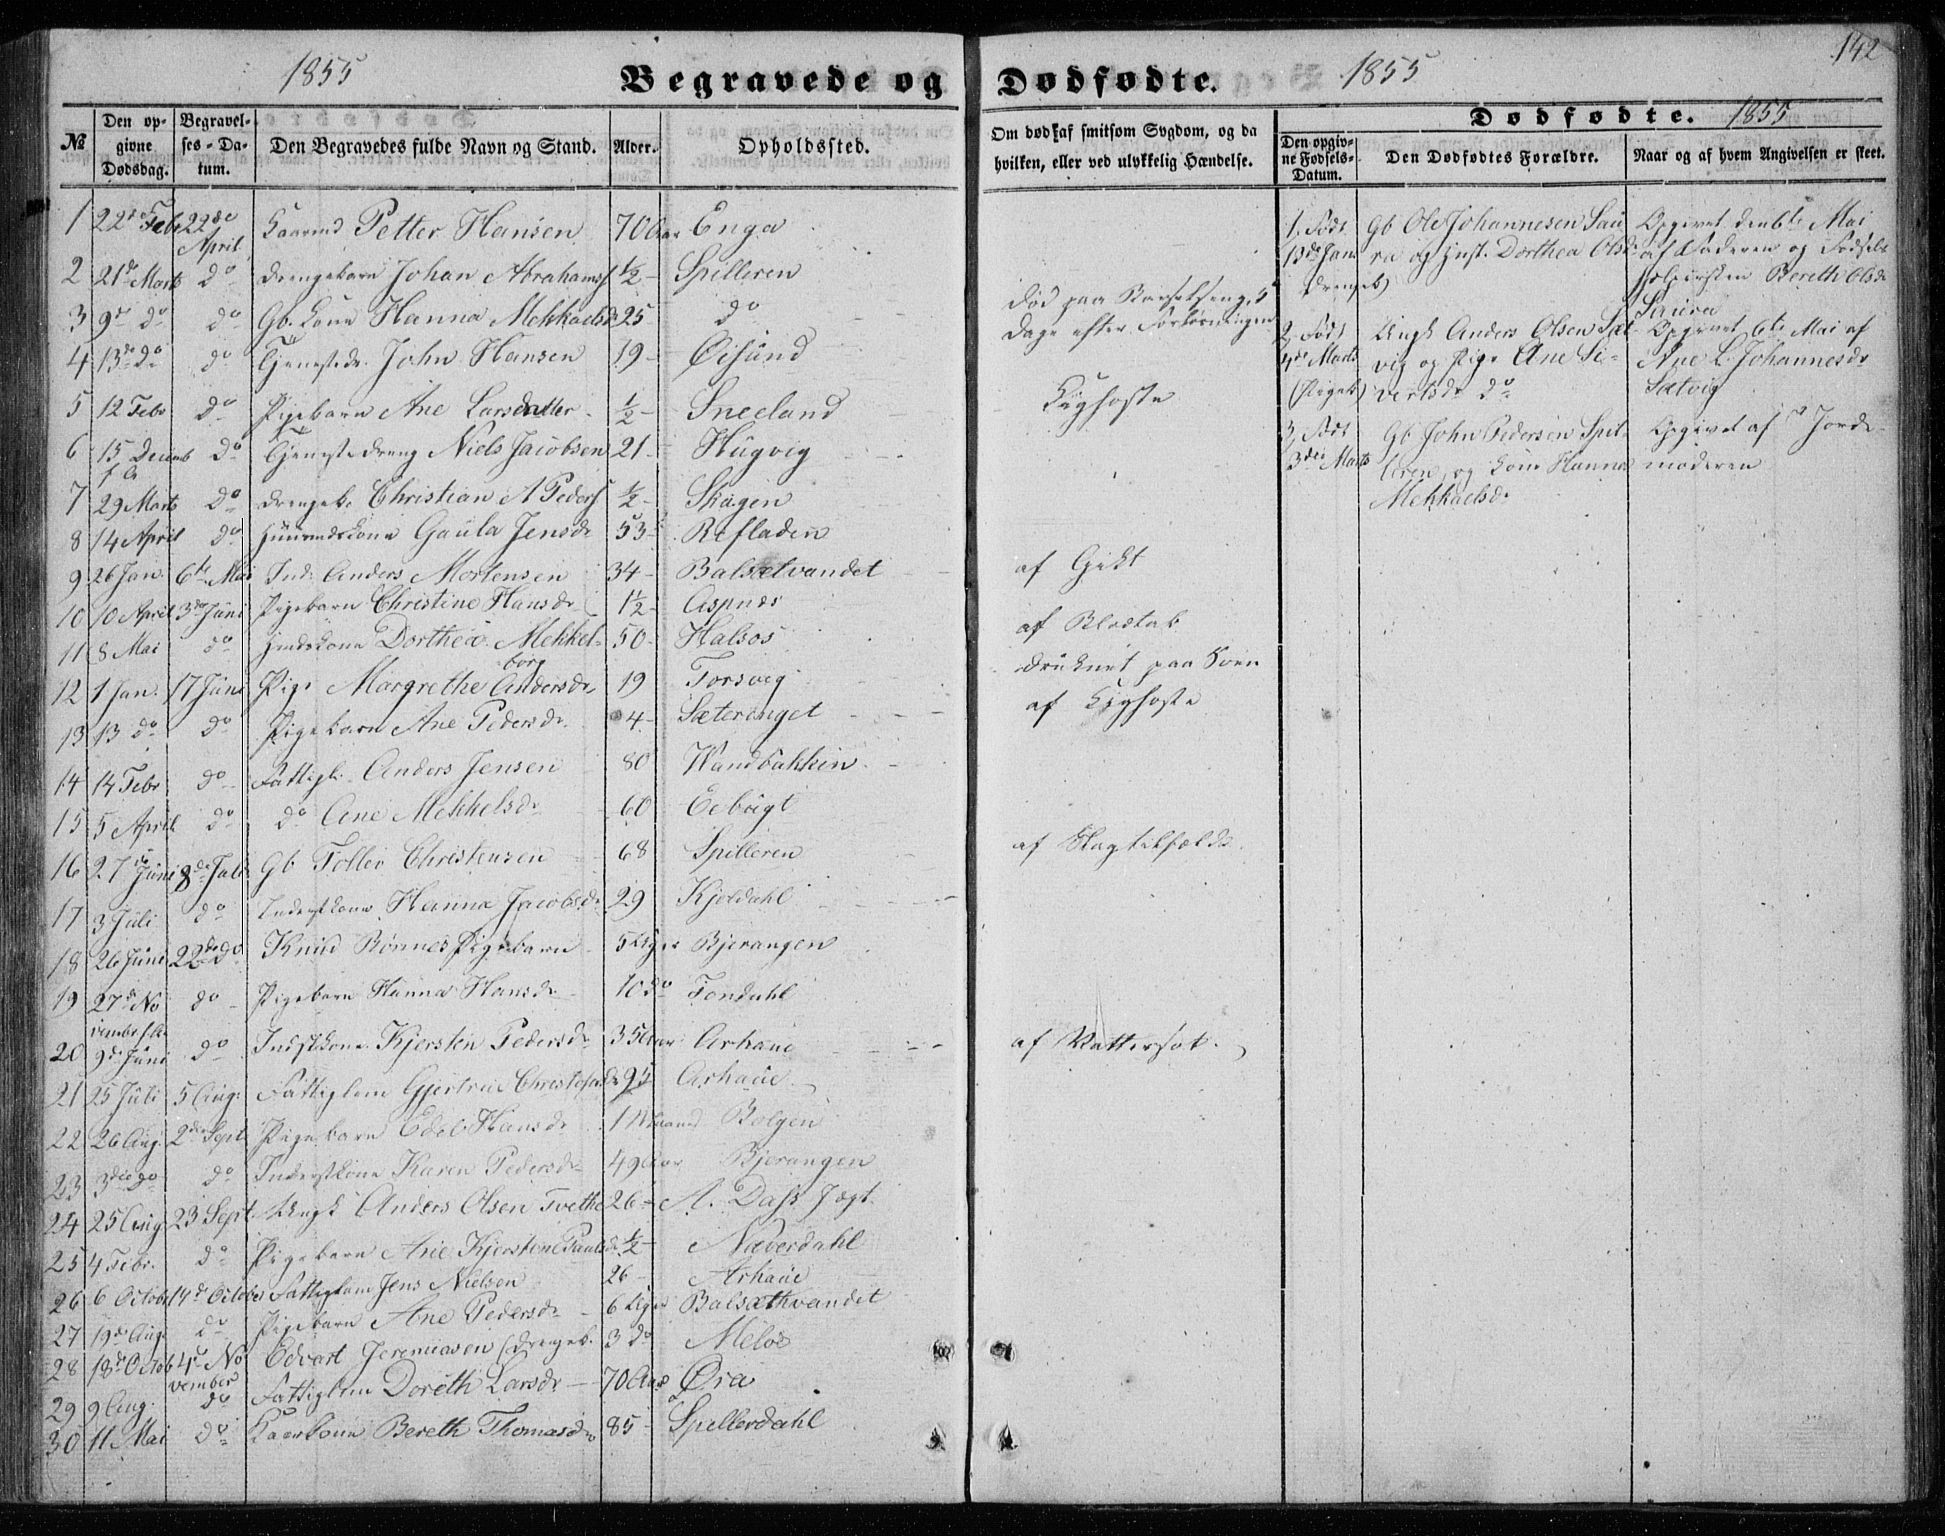 142
1855 Begravede og Dødfødte. 1855
Dødfødte. 1855
№ Den opgivne Dødsdag. Begravelses-Datum. Den Begravedes fulde Navn og Stand. Alder. Opholdssted.
Om død af smitsom Sygdom, og da hvilken, eller ved ulykkelig Hændelse.
Den opgivne Fødsels-Datum. Den Dødfødtes Forældre. Naar og af hvem Angivelsen er skeet.
1 22de Feb 22de April Kaarmd Petter Hansen 70 Aar Enga
2 21de Marts do Drengebarn Johan Abrahams 1/2 - Spilleren
3 9de do do Gb. Kone Hanna Mehkaelsdr 25 do Død paa Barselseng, 5 Dage efter Forløsningen
4 13de do do Tjenestedr. John Hansen 19 - Øisund
5 12 Febr do Pigebarn Ane Larsdatter 1/2 - Sneeland Kighoste
6 15 Decemb f. A. do Tjenestedreng Niels Jacobsen 21 - Hugvig
7 29 Marts do Drengeb. Christian A Peders 1/2 - Skagen
8 14 April do Huusmdskone Gaula Jensdr 53 Refladen
9 26 Jan. 6te Mai Ind: Anders Mortensen 34 - Balsætvandet af Gikt
10 10 April 3die Juni Pigebarn Christine Hansdr 1 1/2 - Aspnes af Blodtab
11 8 Mai do Indskone Dorthea Mehkel- 50 Halsos
12 1 Jan. 17 Juni Pige Margrethe borg Andersdr 19 Torsvig druknet paa Søen
13 13 do do Pigebarn Ane Pedersdr 4 - Sæterenget af Kighoste
14 14 Febr do Fattigl. Anders Jensen 80 Wandbakken
15 5 April do do Ane Mehkelsdr 60 Eebugt
16 27de Juni 8de Juli Gb Toller Christensen 68 Spilleren af Slagtilfælde
17 3 Juli do Inderstkone Hanna Jacobsdr 29 Kjeldahl
18 26 Juni 22de do Knud Rønnes Pigebarn 5 Uger Bjerangen
19 27de November f. A. do Pigebarn Hanna Hansdr 10 do Fondahl
20 9de Juni do Indstkone Kjersten Pedersdr 35 Aar Arhaue af Vattersot.
21 25 Juli 5 Aug. Fattiglem Gjertrue Christofersdr 95 Arhaue
22 26 Aug. 2den Sept Pigebarn Edel Hansdr 1 Maaned Bolgen
23 3die do do Inderstkone Karen Pedersdr 49 Aar Bjerangen
24 25 Aug 23 Sept. Ungk Anders Olsen Tvethe 26 - A. Dass Jægt.
25 4 Febr. do Pigebarn Ane Kjerstine Paulsdr 1/2 - Næverdahl
26 6 Octobr 14de October Fattiglem Jens Nielsen 26 - Arhaue
27 19de Aug. do Pigebarn Ane Pedersdr 6 Uger Balsæthvandet
28 18de Octob 4de November Edvart Jeremiasen (Drengeb. 3 do Meløe
29 9 Aug. do Fattiglem Dorith Larsdr 70 Aar Øra
30 11 Mai do Kaarkone Bereth Thomasdr 85 - Spellerdahl
1, Født 13de Jan (Drengeb) Gb Ole Johannesen Saura og Hust. Dorthea Olsdr Opgivet den 6te Mai af Faderen og Fødselshjelpersken Bereth Olsdr Saura
2, Født 4de Marts (Pigeb) Ungk Anders Olsen Sætvig og Pige Ane Sivertsdr do Opgivet 6te Mai af Ane L. Johannesdr Sætvig
3, Født 3die Marts Gb John Pedersen Spilleren og Kone Hanna Mehkaelsdr Opgivet af Jordemoderen